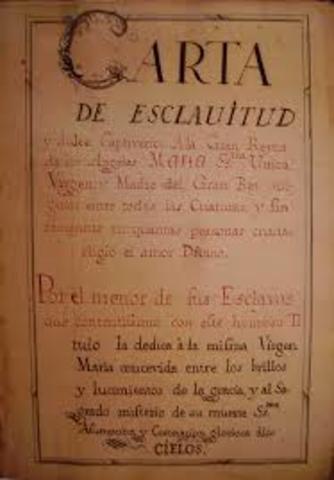 CARTA
DE ESCLAUITUD
y dulce Captiverio A la Gran Reyna
de los Angeles Maria SSma Unica
Virgen y Madre del Gran Rey
entre todas las Criaturas y
quantas personas
eligio el amor Diuino.
Por el menor de sus Esclavos
que contentissimo con este honroso Ti
tulo la dedica à la misma Virgen
Maria concevida entre los brillos
y lucimientos de la gracia, y al Sa
grado misterio de su muerte
Assumpcion y Coronacion gloriosa
CIELOS.